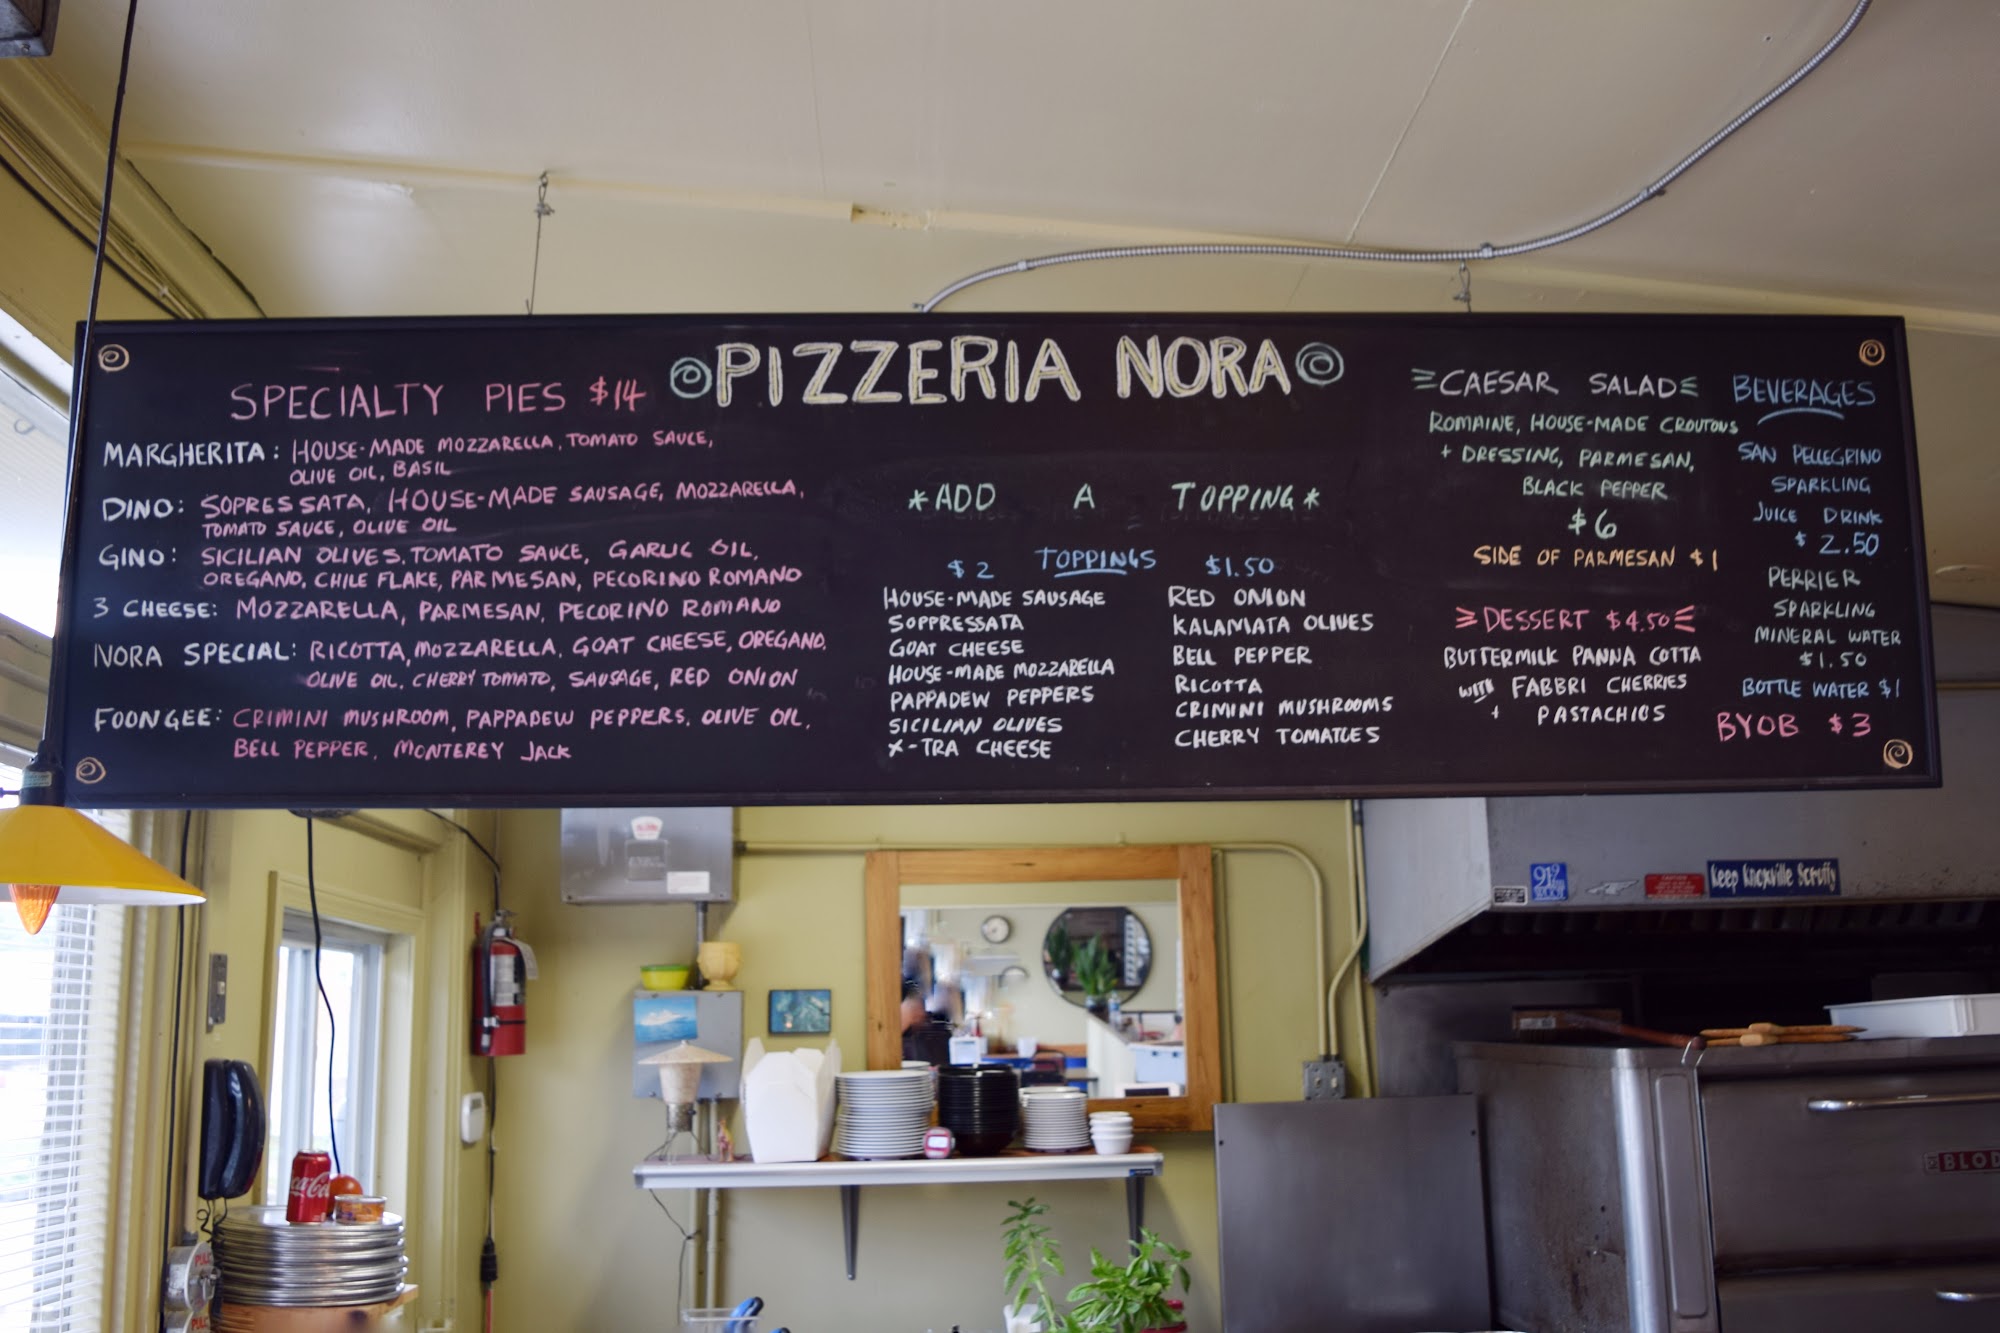 PIZZERIA NORA
SPECIALTY PIES $14
MARGHERITA: HOUSE-MADE MOZZARELLA, TOMATO SAUCE,
OLIVE OIL, BASIL
DINO: SOPRESSATA, HOUSE-MADE SAUSAGE, MOZZARELLA,
TOMATO SAUCE, OLIVE OIL
GINO: SICILIAN OLIVES, TOMATO SAUCE, GARLIC OIL,
OREGANO, CHILE FLAKE, PARMESAN, PECORINO ROMANO
3 CHEESE: MOZZARELLA, PARMESAN, PECORINO ROMANO
NORA SPECIAL: RICOTTA, MOZZARELLA, GOAT CHEESE, OREGANO,
OLIVE OIL, CHERRY TOMATO, SAUSAGE, RED ONION
FOONGEE: CRIMINI MUSHROOM, PAPPADEW PEPPERS, OLIVE OIL,
BELL PEPPER, MONTEREY JACK
*ADD A TOPPING*
$2 TOPPINGS $1.50
HOUSE-MADE SAUSAGE
SOPPRESSATA
GOAT CHEESE
HOUSE-MADE MOZZARELLA
PAPPADEW PEPPERS
SICILIAN OLIVES
X-TRA CHEESE
RED ONION
KALAMATA OLIVES
BELL PEPPER
RICOTTA
CRIMINI MUSHROOMS
CHERRY TOMATOES
CAESAR SALAD
ROMAINE, HOUSE-MADE CROUTONS
+ DRESSING, PARMESAN,
BLACK PEPPER
$6
SIDE OF PARMESAN $1
DESSERT $4.50
BUTTERMILK PANNA COTTA
WITH FABBRI CHERRIES
+ PASTACHIOS
BEVERAGES
SAN PELLEGRINO
SPARKLING
JUICE DRINK
$2.50
PERRIER
SPARKLING
MINERAL WATER
$1.50
BOTTLE WATER $1
BYOB $3
Keep Knoxville Scruffy
Coca-Cola
BLOD